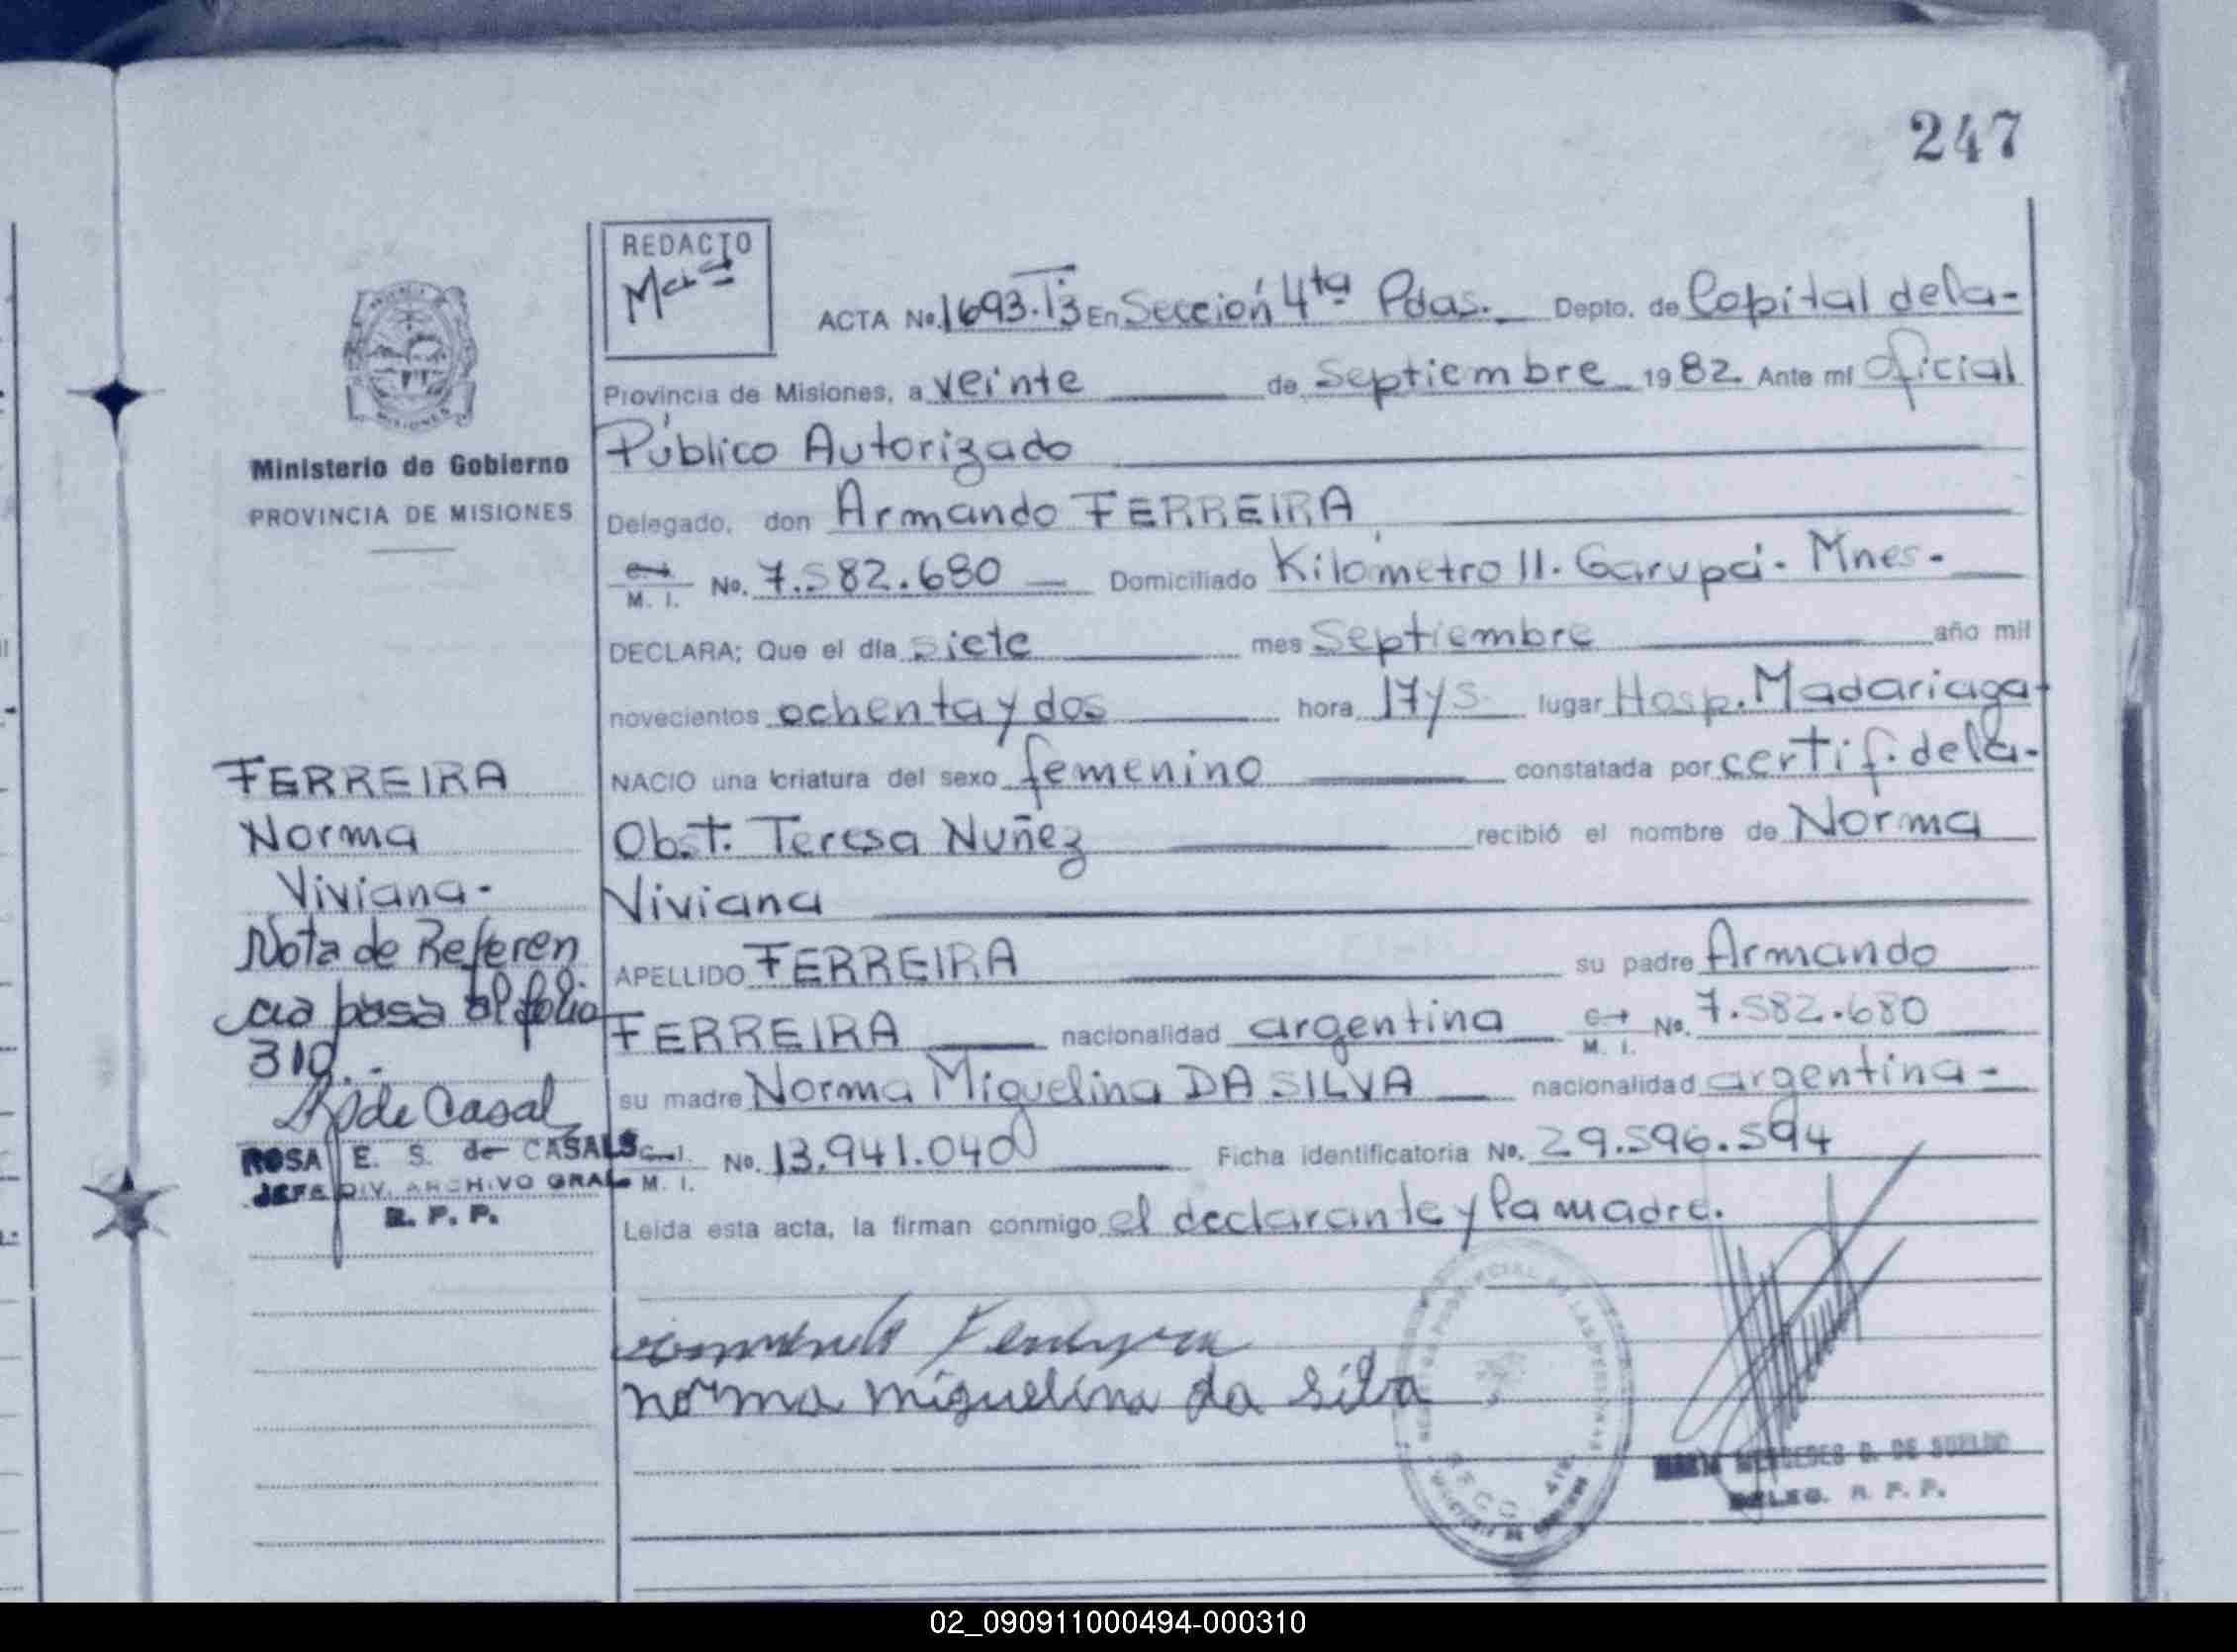 247
REDACTO
ACTA No. 1693.T3 En Sección 4ta Pdas. Depto. de Capital dela-
Provincia de Misiones, a veinte de Septiembre 1982 Ante mí Oficial
Público Autorizado
Ministerio de Gobierno
PROVINCIA DE MISIONES
Delegado, don Armando FERREIRA
M. I. No. 7.582.680 Domiciliado Kilómetro 11. Garupá. Mnes-
DECLARA; Que el día siete mes Septiembre año mil
novecientos ochenta y dos hora 17y5 lugar Hosp. Madariaga
NACIO una criatura del sexo femenino constatada por certif. dela-
Obst. Teresa Nuñez recibió el nombre de Norma
Viviana
APELLIDO FERREIRA su padre Armando
FERREIRA nacionalidad argentina C.I. M. I. No. 7.582.680
su madre Norma Miguelina DA SILVA nacionalidad argentina-
C.I. M. I. No. 13.941.040 Ficha identificatoria No. 29.596.594
Leída esta acta, la firman conmigo el declarante y la madre.
FERREIRA
Norma
Viviana-
Nota de Referen
cia pasa al folio
310.-
de Casal
ROSA E. S. de CASALS
JEFA DIV. ARCHIVO GRAL
R. P. P.
norma miguelina da silva
MARIA MERCEDES D. DE
DELEG. R. P. P.
02_090911000494-000310